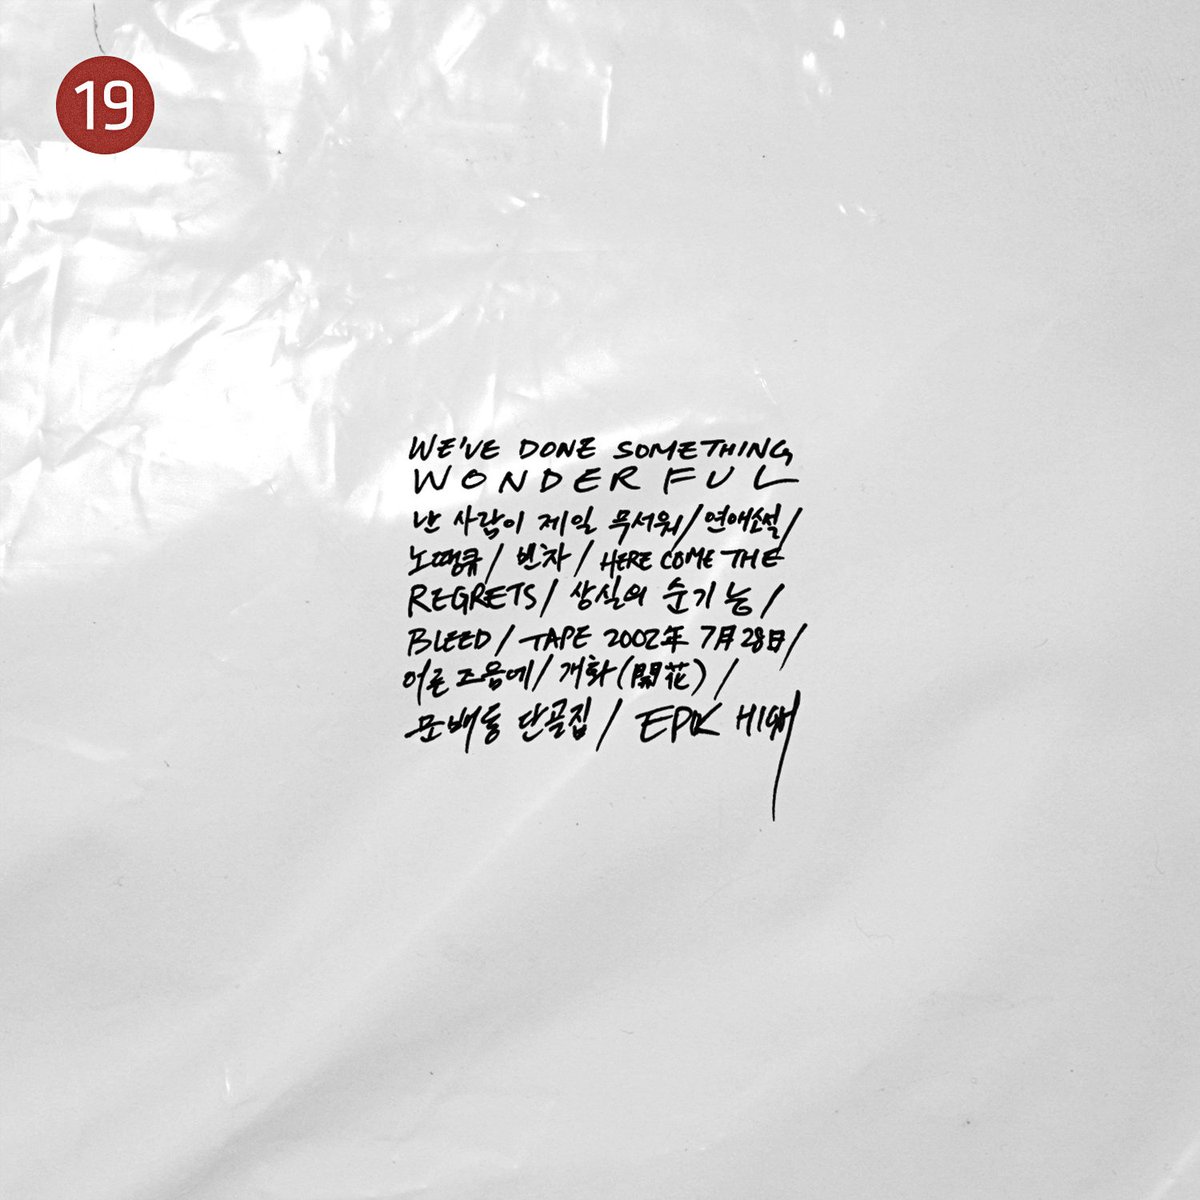 19
WE'VE DONE SOMETHING
WONDERFUL
난 사람이 제일 무서워/연애소설/
노땡큐/빈차/HERE COME THE
REGRETS/상실의 순기능/
BLEED/TAPE 2002年 7月28日/
어른 즈음에/개화(開花)/
문배동 단골집/EPIK HIGH